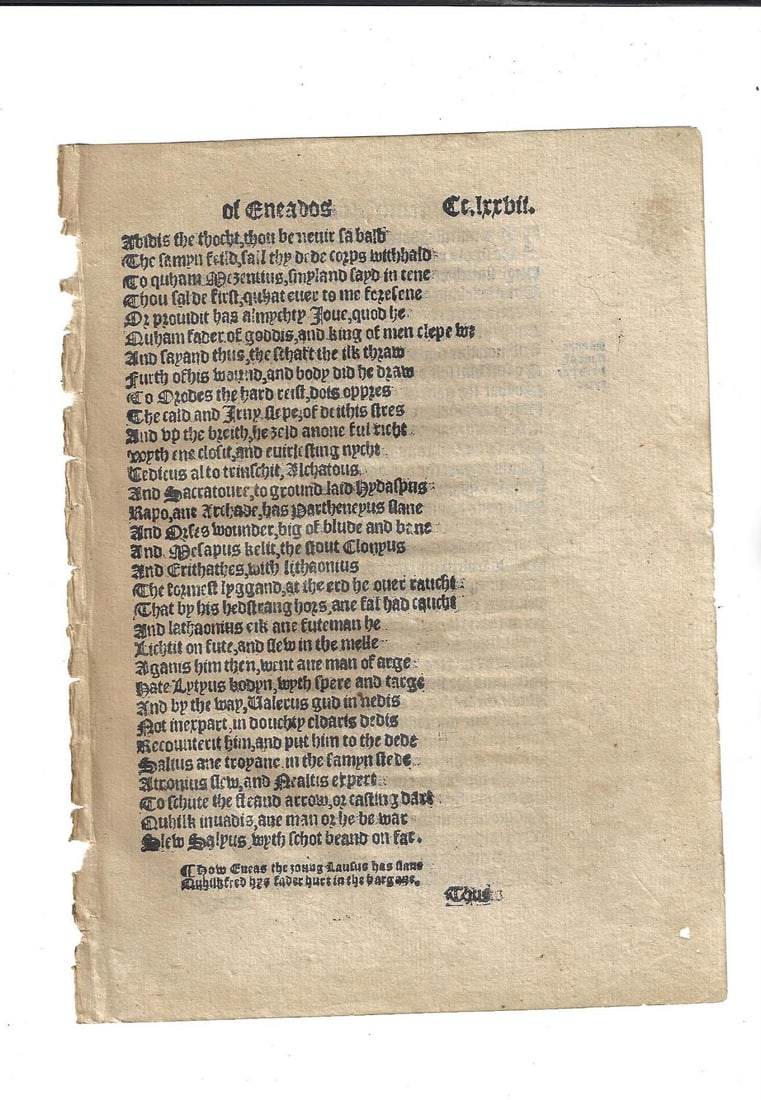 of Eneados
Cc.lxxvii.
Abidis the thocht, thou be neuir sa bald
The samyn feild, sall thy dede corps withhald
To quham Mezentius, smyland sayd in tene
Thou sal de first, quhat euer to me foresene
Or prouidit has almychty Joue, quod he
Quham fader of goddis, and king of men clepe we
And sayand thus, the schaft the ilk thraw
Furth of his wound, and body did he draw
To Orodes the hard reist, dois oppres
The cald and Irny slepe, of deithis stres
And vp the breith, he zeld anone ful richt
wyth ene closit, and euirlesting nycht
Cedicus al to trinschit, Alchatous
And Sacratoure, to ground laid Hydaspus
Rapo, ane Archade, has Partheneyus slane
And Orses wounder, big of blude and bane
And Mesapus kelit, the stout Clonyus
And Erithathes, with lithaonius
The formest lyggand, at the erd he ouer raucht
That by his hedstrang hors, ane fal had caucht
And lathaonius eik ane futeman he
Lichtit on fute, and slew in the melle
Aganis him then, went ane man of arge
Hate Lytyus bodyn, wyth spere and targe
And by the way, Ualerus gud in nedis
Not inexpart, in douchty eldaris dedis
Recounterit him, and put him to the dede
Salius ane troyane in the samyn stede
Atronius slew, and Nealtis expert
To schute the fleand arrow, or casting dart
Quhilk inuadis, ane man or he be war
Slew Salyus, wyth schot beand on far.
¶ How Eneas the zoung Lausus has slane
Quhilk fred hys fader hurt in the bargane.
Thus